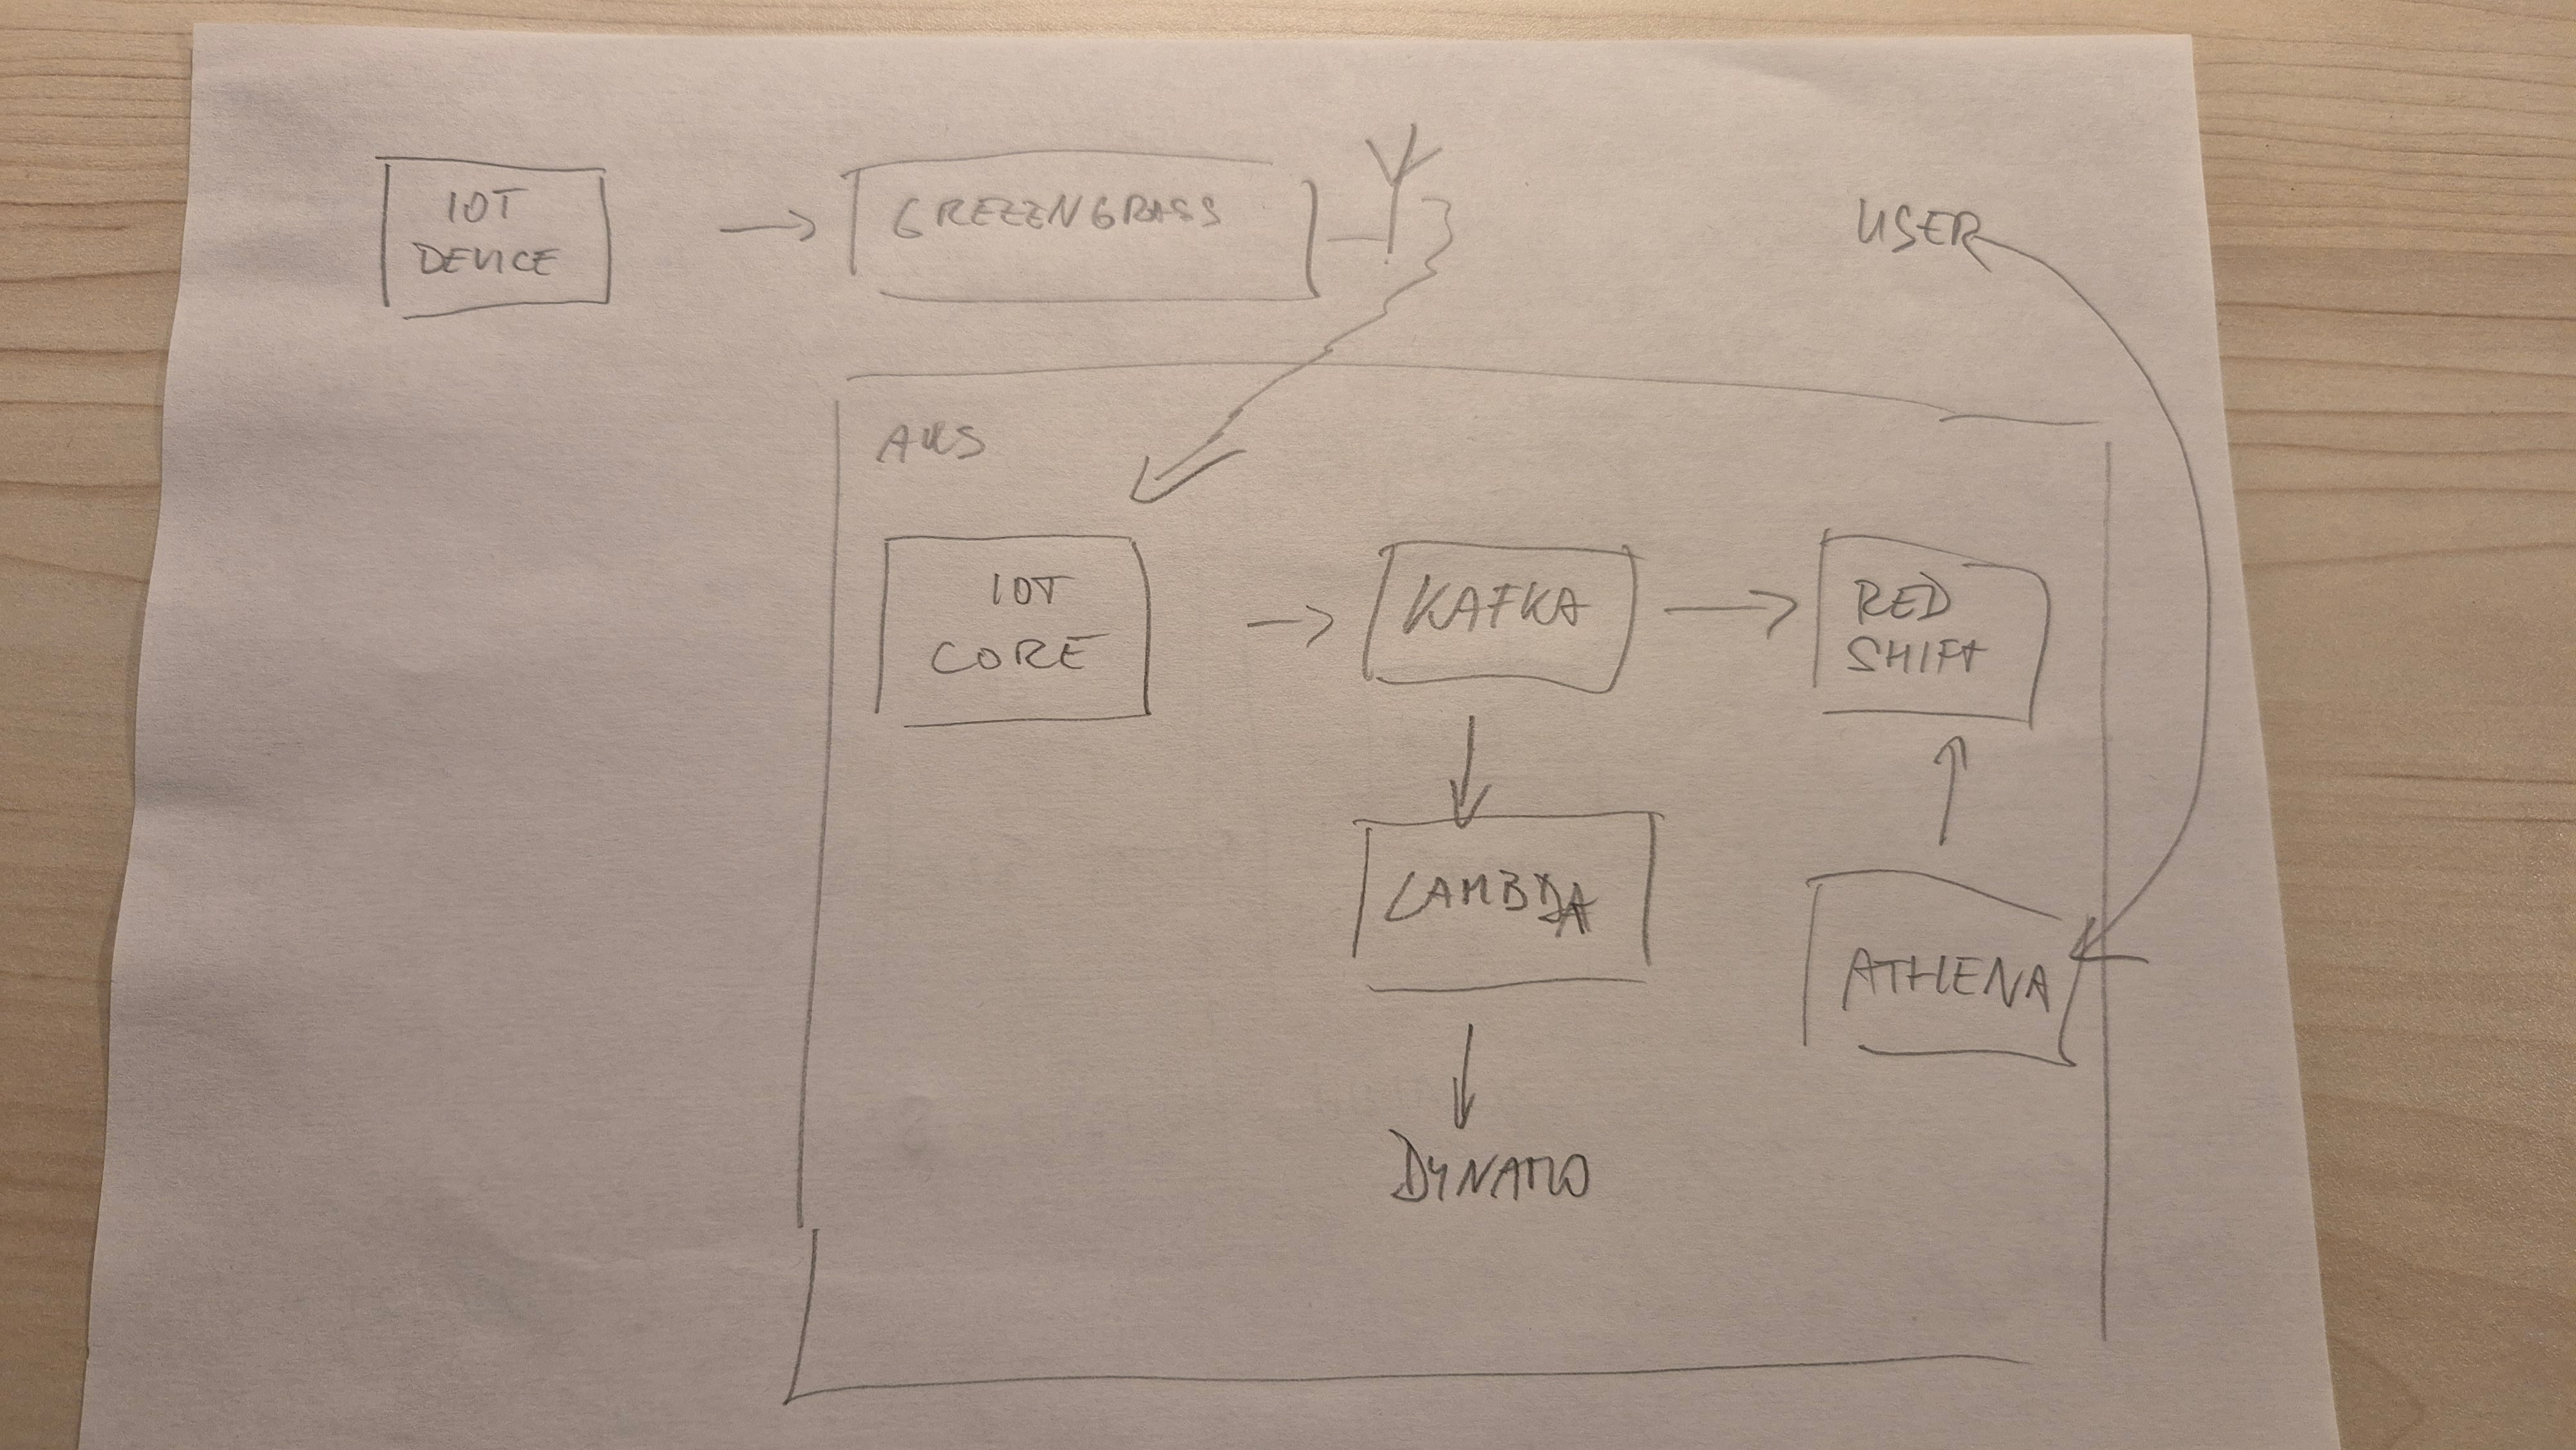 IOT
DEVICE
GREENGRASS
USER
AWS
IOT
CORE
KAFKA
RED
SHIFT
LAMBDA
ATHENA
DYNAMO